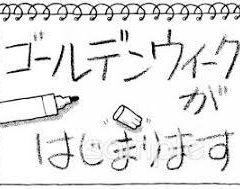 ゴールデンウィーク
が
はじまります